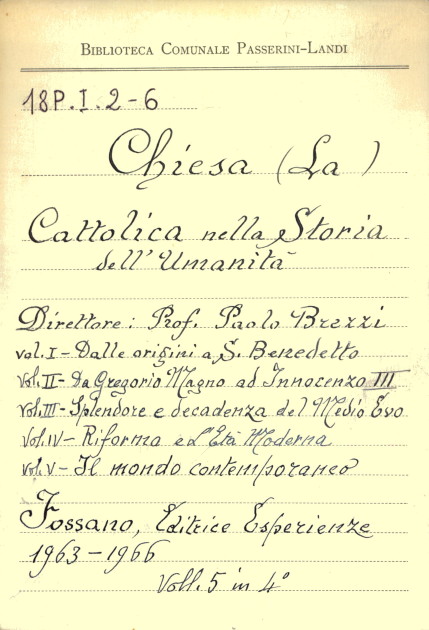 BIBLIOTECA COMUNALE PASSERINI-LANDI
18P.I.2-6
Chiesa (La)
Cattolica nella Storia
dell'Umanità
Direttore: Prof. Paolo Brezzi
vol. I - Dalle origini a S. Benedetto
Vol. II - Da Gregorio Magno ad Innocenzo III
Vol. III - Splendore e decadenza del Medio Evo
Vol. IV - Riforma e L'Età Moderna
vol. V - Il mondo contemporaneo
Fossano, Editrice Esperienze
1963-1966
Voll. 5 in 4°